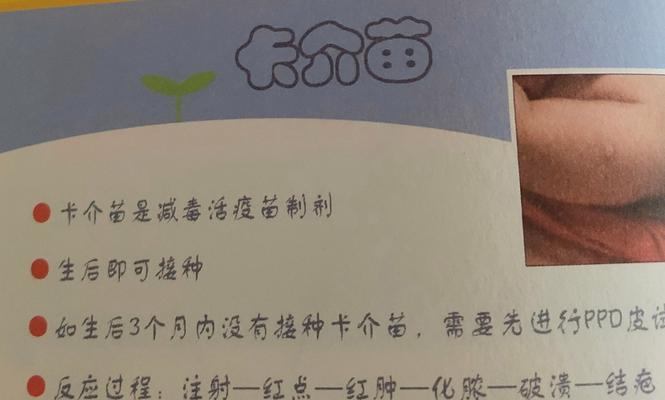 卡介苗
卡介苗是减毒活疫苗制剂
生后即可接种
如生后3个月内没有接种卡介苗，需要先进行PPD皮试
反应过程：注射—红点—红肿—化脓—破溃—结疤